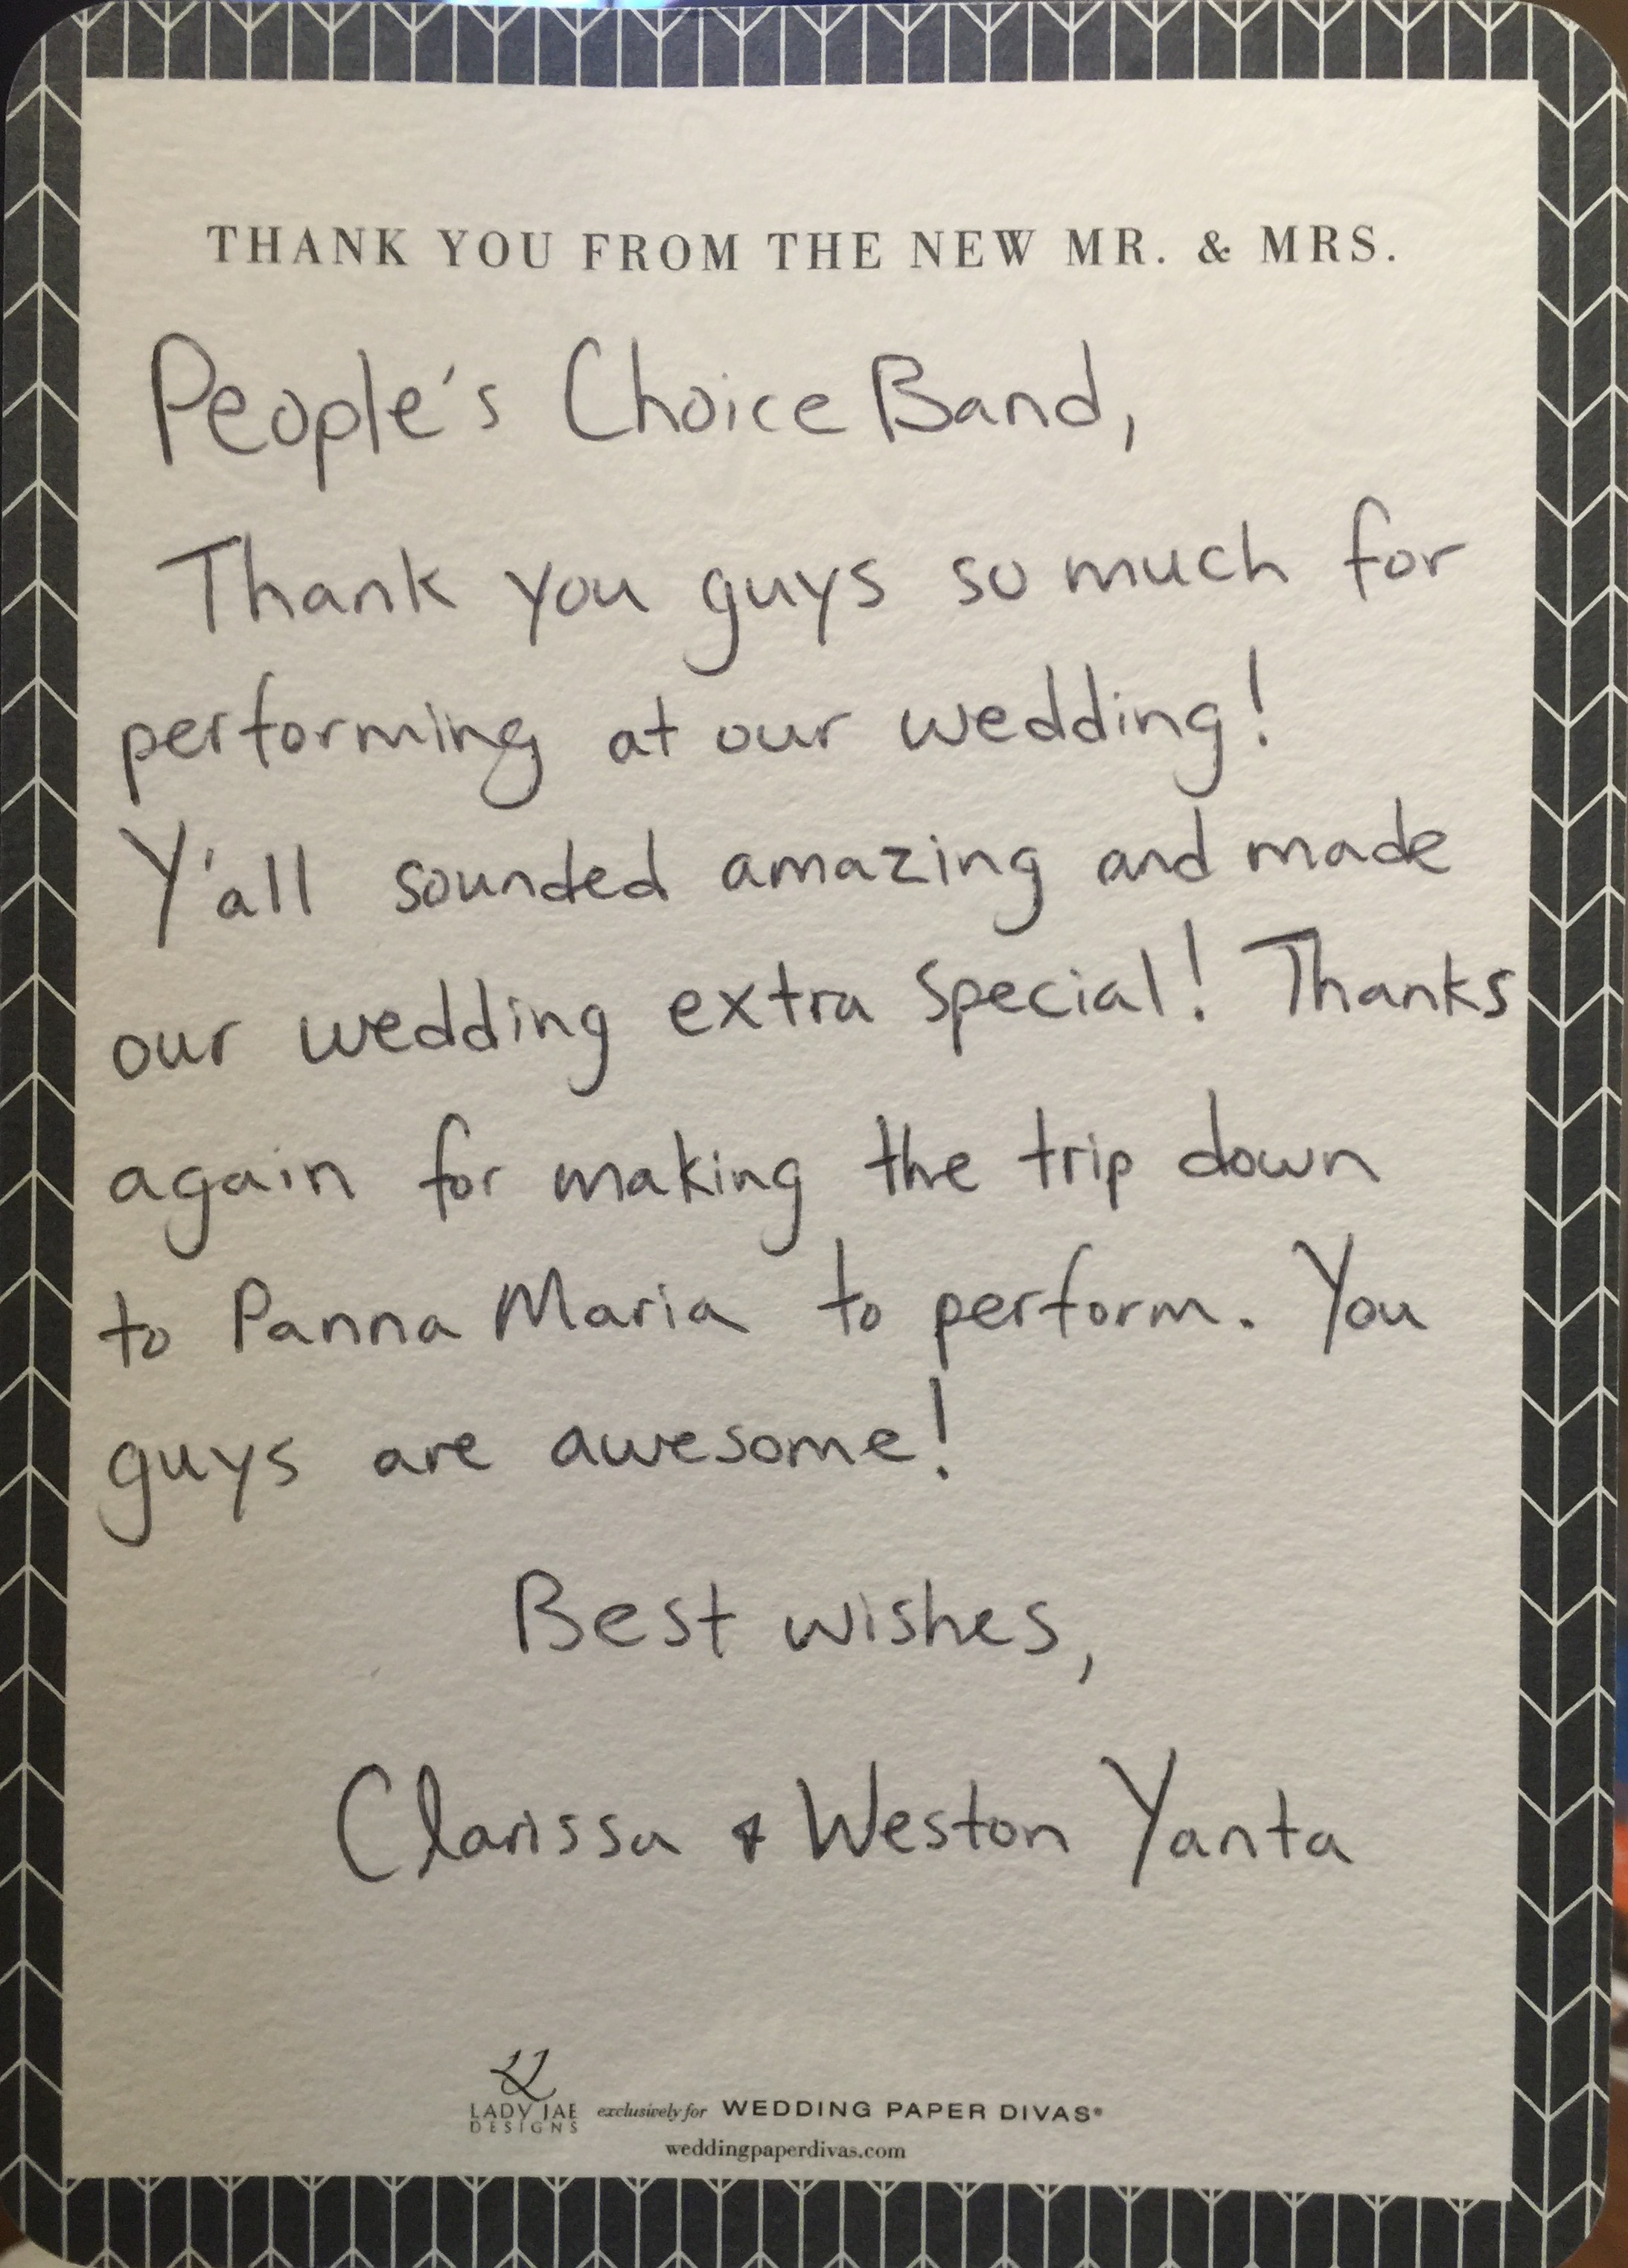 THANK YOU FROM THE NEW MR. & MRS.
People's Choice Band,
Thank you guys so much for
performing at our wedding!
Y'all sounded amazing and made
our wedding extra special! Thanks
again for making the trip down
to Panna Maria to perform. You
guys are awesome!
Best wishes,
Clarissa & Weston Yanta
LADY JAE
DESIGNS
exclusively for WEDDING PAPER DIVAS®
weddingpaperdivas.com